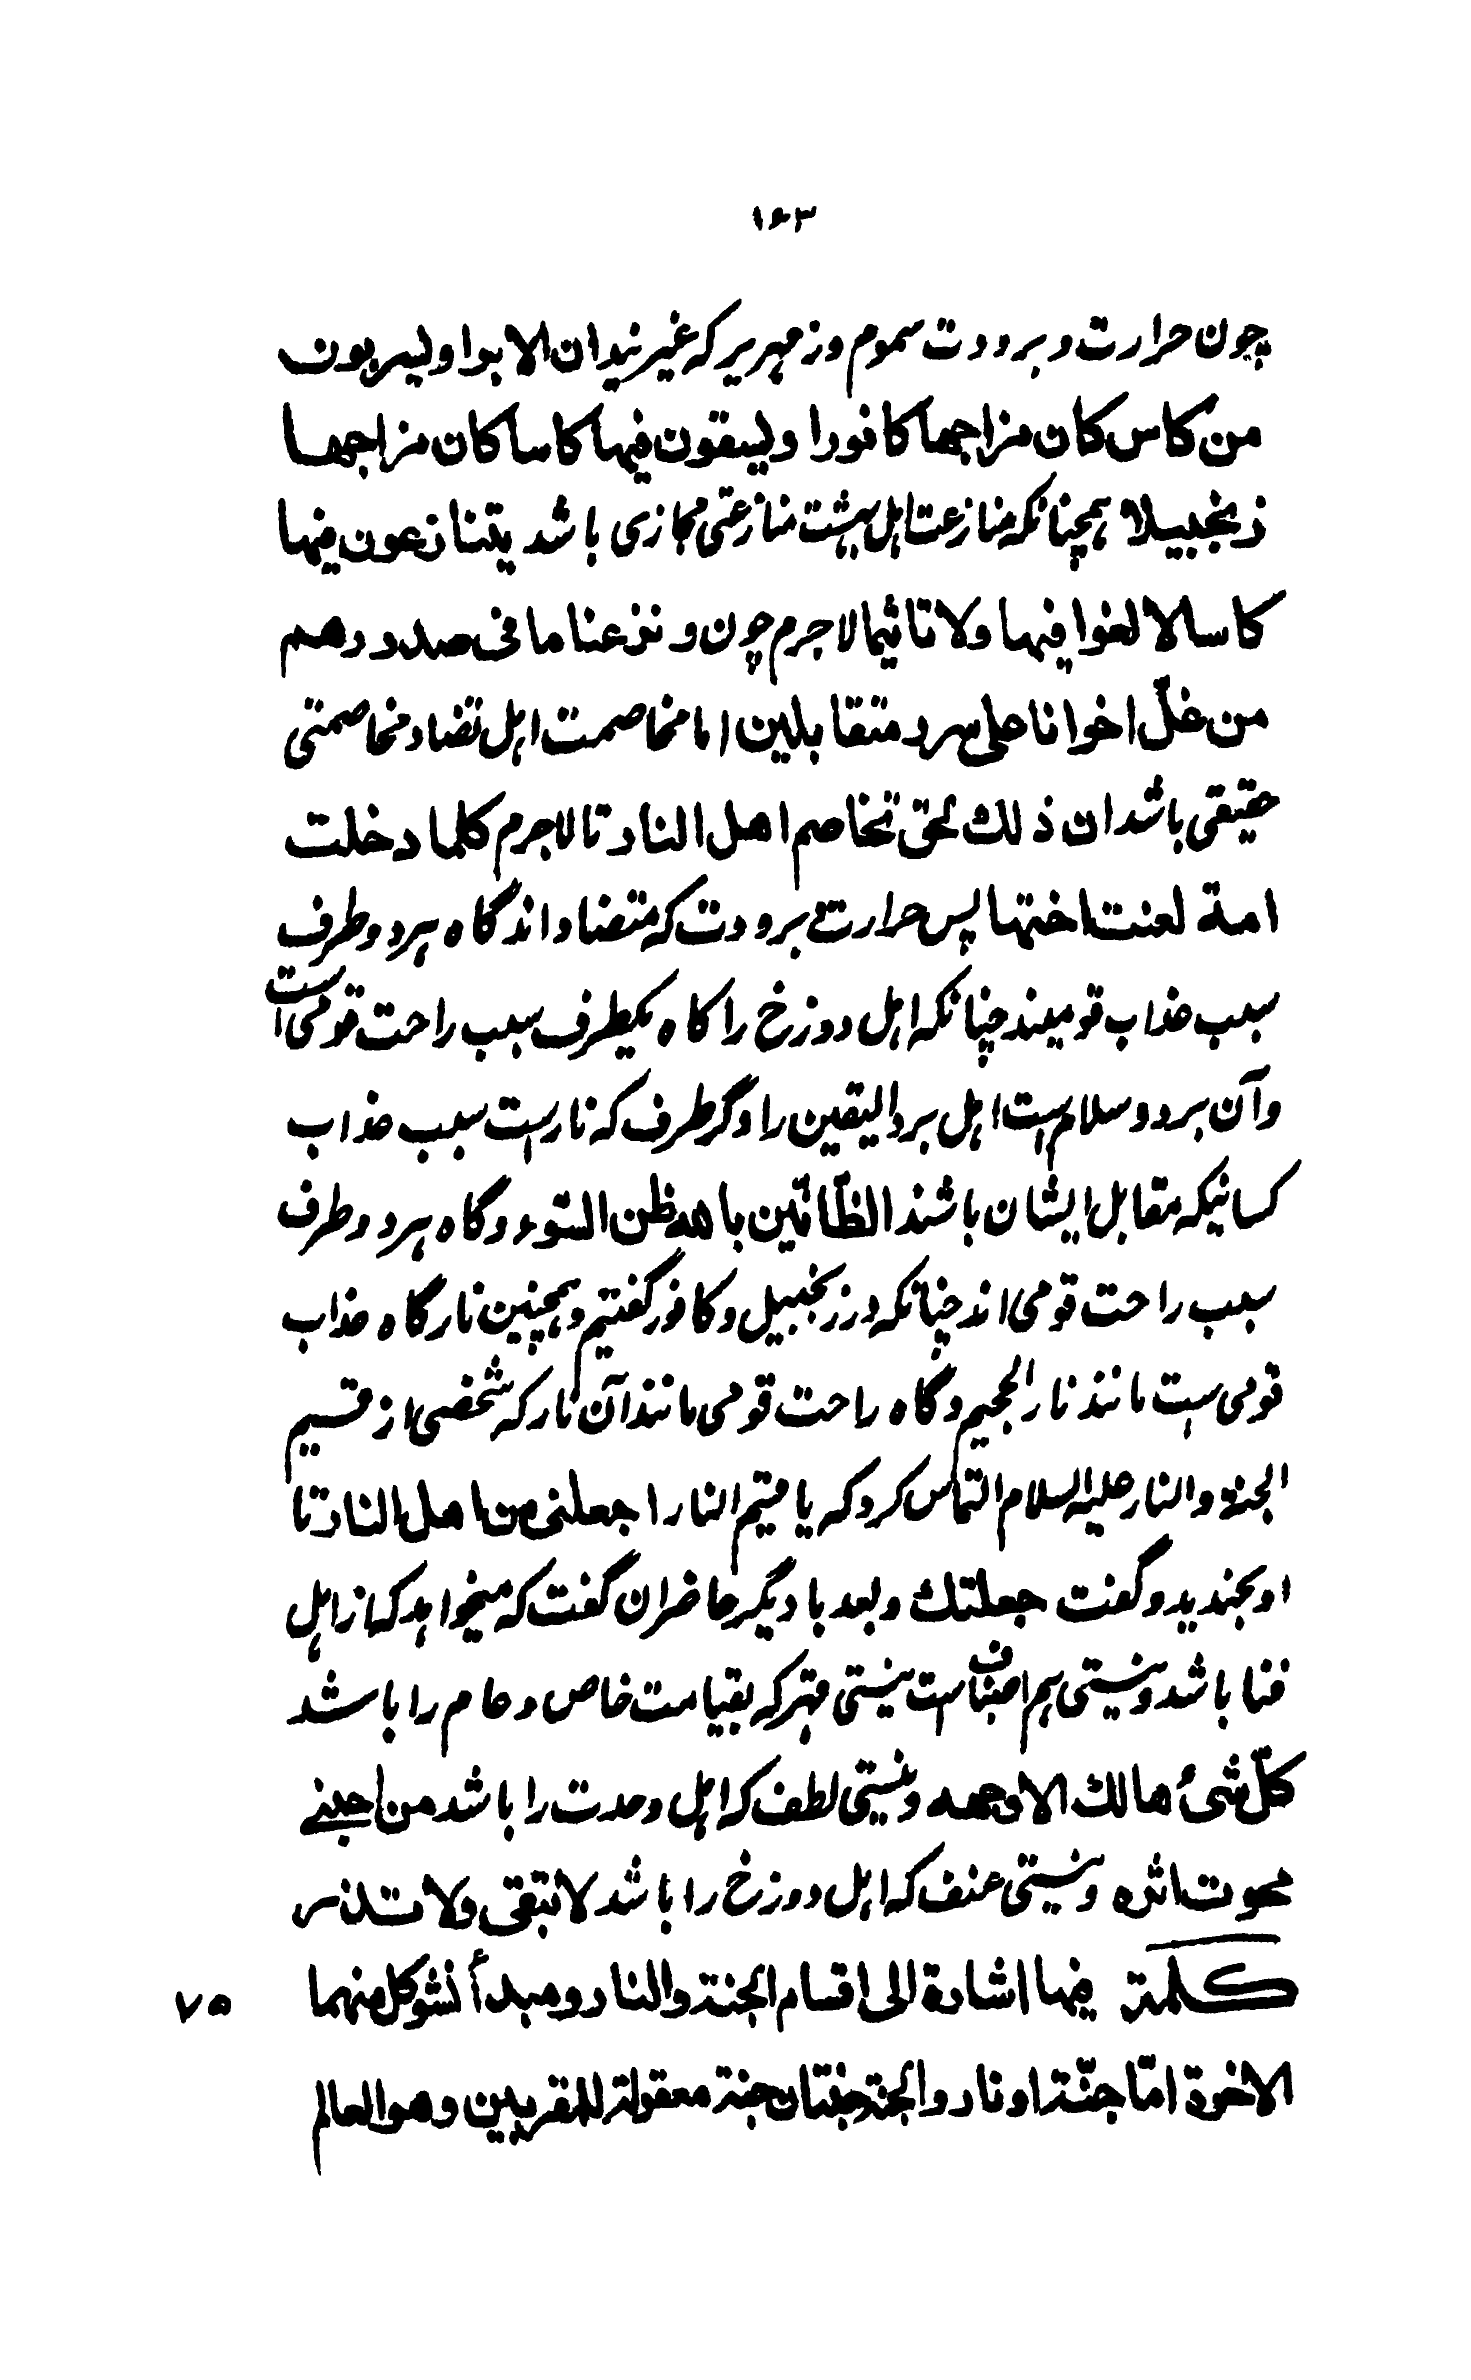 ۱۶۳
چون حرارت و برودت سموم وزمهریر که غیرنیدان الابوا ویسربون
من کاس کان مزاجها کافورا ویسقون فیها کاسا کان مزاجها
زنجبیلا همچنانکه منازعت اهل بهشت منازعتی مجازی باشد یتنازعون فیها
کاسا لا لغوا فیها ولا تاثیما لاجرم چون ونزعنا ما فی صدورهم
من غلّ اخوانا علی سرر متقابلین اما مخاصمت اهل تضاد مخاصمتی
حقیقی باشد ان ذلك لحق تخاصم اهل النار تا لاجرم کلما دخلت
امة لعنت اختها پس حرارت و برودت که متضاد اند گاه هر دو طرف
سبب عذاب قومیند چنانکه اهل دوزخ را کاه یکطرف سبب راحت قومی است
وآن برد و سلام است اهل برد الیقین را و گر طرف که نارست سبب عذاب
کسانیکه مقابل ایشان باشند الظّانّین بالله ظن السّوء و گاه هر دو طرف
سبب راحت قومی اند چنانکه در زنجبیل و کافور گفتیم و همچنین نار گاه عذاب
قومی ست مانند نار الجحیم و گاه راحت قومی مانند آن نار که شخصی از قسیم
الجنة والنار علیه السلام التماس کرد که یا قسیم النار اجعلنی من اهل النار تا
او بخندید و گفت جعلتك و بعد با دیگر حاضران گفت که میخواهد که از اهل
فنا باشد و نیستی هم اصناف است نیستی قهر که بقیامت خاص و عام را باشد
کلّ شیٔ هالك الا وجهه و نیستی لطف که اهل وحدت را باشد من احبنی
محوت اثره و نیستی عنف که اهل دوزخ را باشد لا تبقی ولا تذر
کلمة فیها اشارة الی اقسام الجنة والنار ومبدأ نشو کل منهما
۷۵
الاخرة امّا جنّة او نار والجنة جنتان جنة معقولة للمقربین وهو العالم